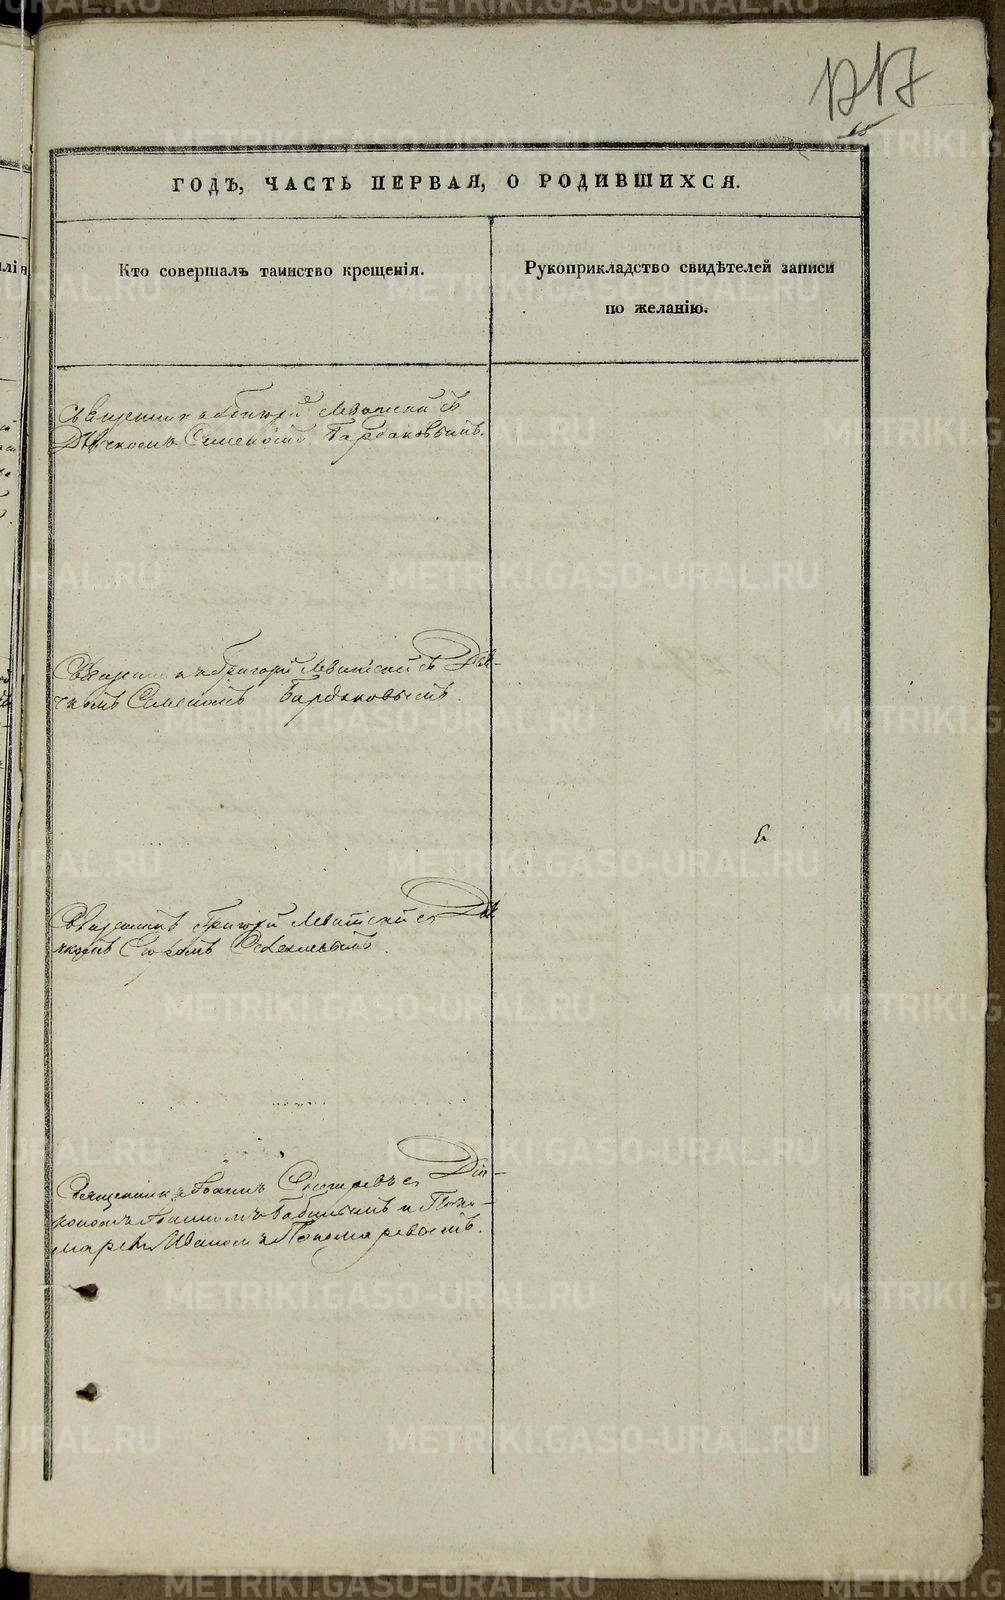 ГОДЪ, ЧАСТЬ ПЕРВАЯ, О РОДИВШИХСЯ.
Кто совершалъ таинство крещенія.
Рукоприкладство свидѣтелей записи
по желанію.
Священникъ Григорій Левитскій съ
Дьячкомъ Семеномъ Бардаковымъ.
Священникъ Григорій Левитскій съ Дья-
чкомъ Семеномъ Бардаковымъ.
Священникъ Григорій Левитскій съ Дья
чкомъ
Священникъ Іоаннъ съ Діа-
кономъ Іоанномъ Бабинымъ и Поно-
маремъ Иваномъ Пономаревымъ.
METRIKI.GASO-URAL.RU